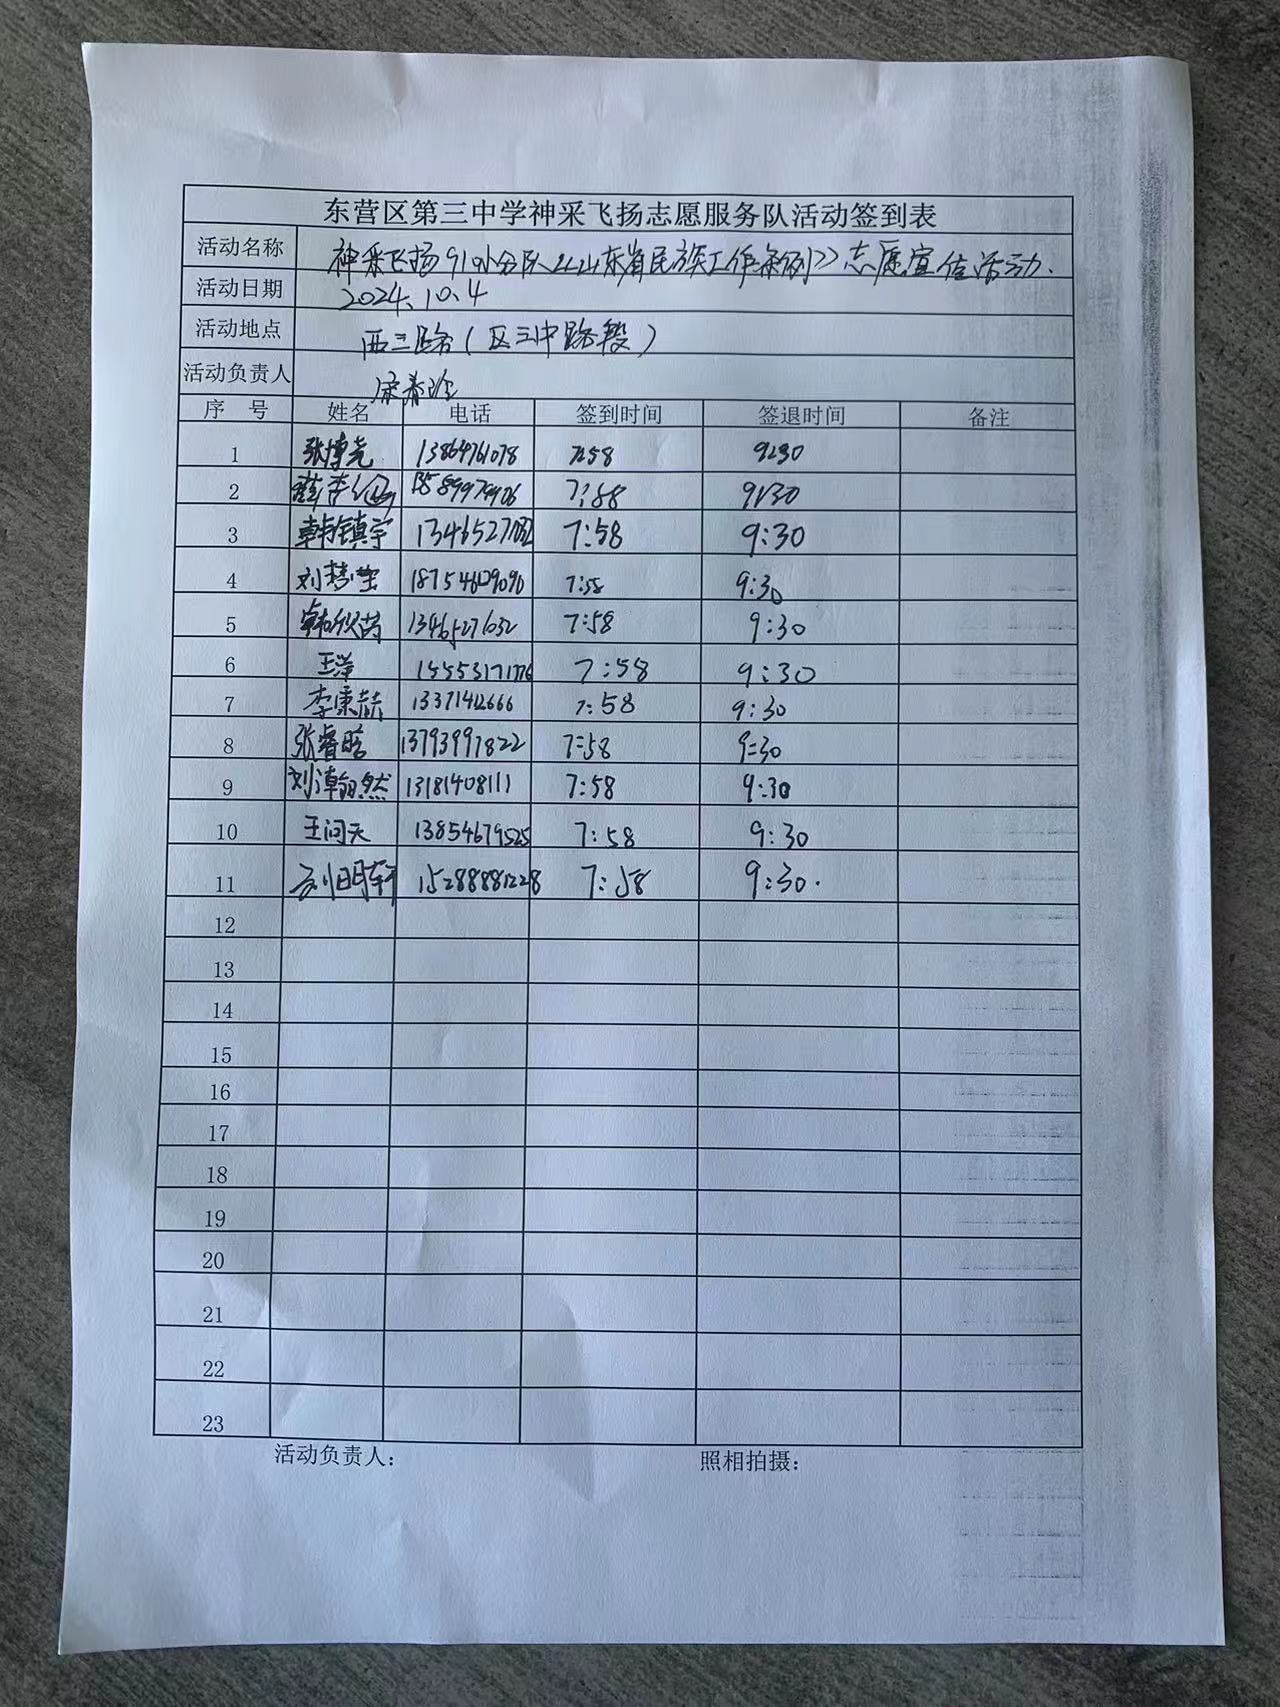 东营区第三中学神采飞扬志愿服务队活动签到表
活动名称 神采飞扬910小分队《山东省民族工作条例》志愿宣传活动.
活动日期 2024.10.4
活动地点 西三路(区三中路段)
活动负责人
序 号 姓名 电话 签到时间 签退时间 备注
1 张博尧 13864761078 7:58 9:30
2 7:58 9:30
3 韩镇宇 7:58 9:30
4 刘梦莹 18754609090 7:58 9:30
5 13465276032 7:58 9:30
6 王萍 15553171776 7:58 9:30
7 李秉喆 13371412666 7:58 9:30
8 张睿晗 13793997822 7:58 9:30
9 13181408111 7:58 9:30
10 王问天 13854679525 7:58 9:30
11 刘明轩 15288881228 7:58 9:30.
12
13
14
15
16
17
18
19
20
21
22
23
活动负责人: 照相拍摄: